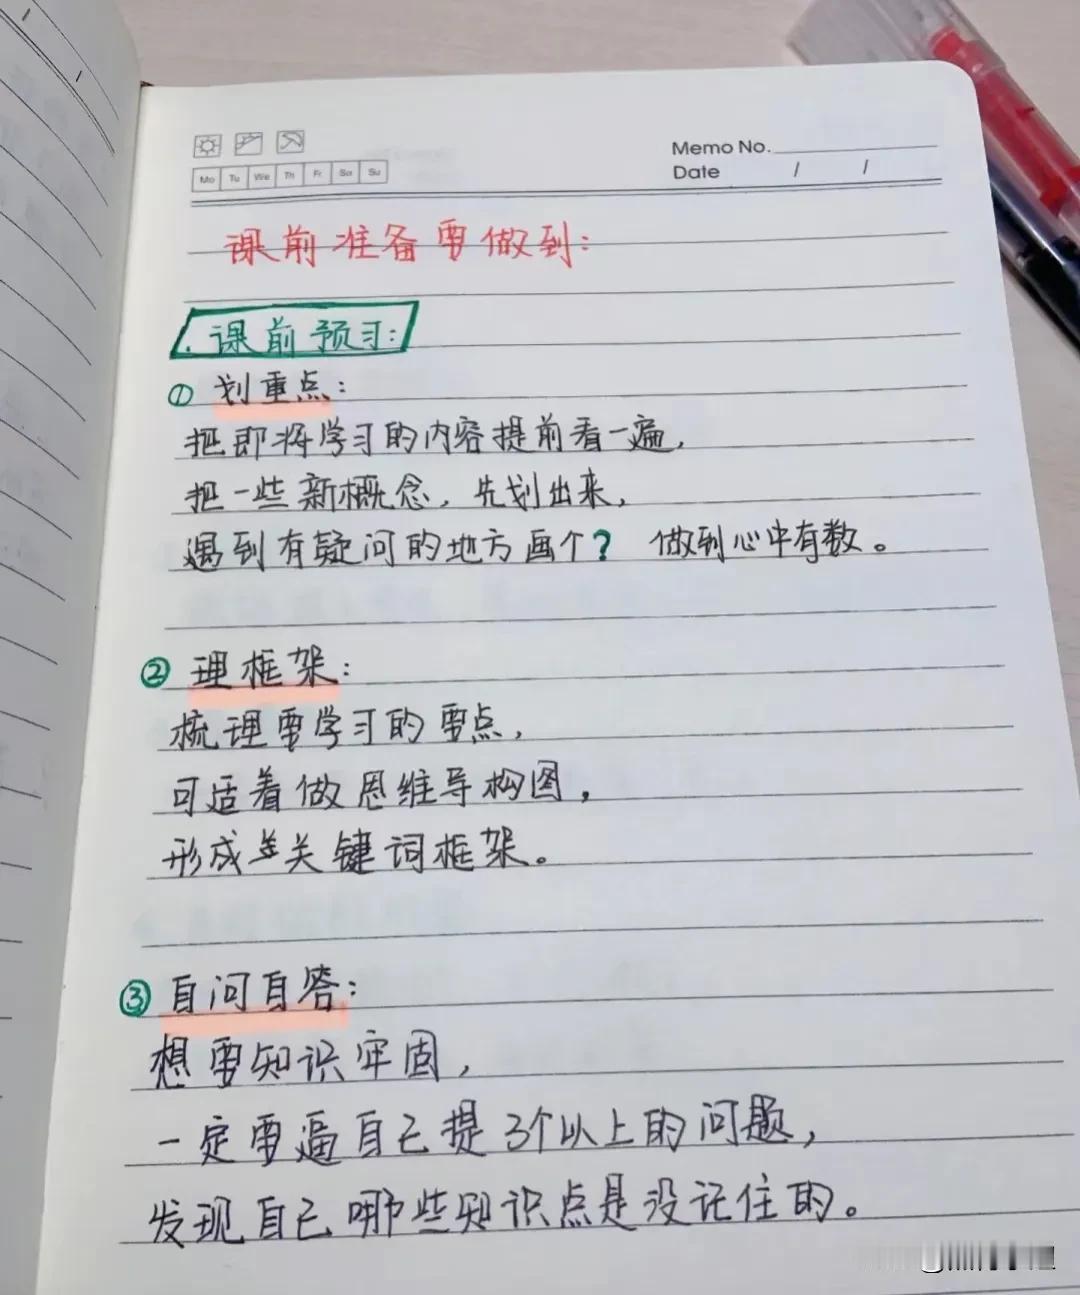 Mo Tu We Th Fr Sa Su
Memo No.
Date / /
课前准备要做到:
课前预习:
① 划重点:
把即将学习的内容提前看一遍,
把一些新概念,先划出来,
遇到有疑问的地方画个? 做到心中有数。
② 理框架:
梳理要学习的要点,
可适着做思维导构图,
形成关键词框架。
③ 自问自答:
想要知识牢固,
一定要逼自己提3个以上的问题,
发现自己哪些知识点是没记住的。